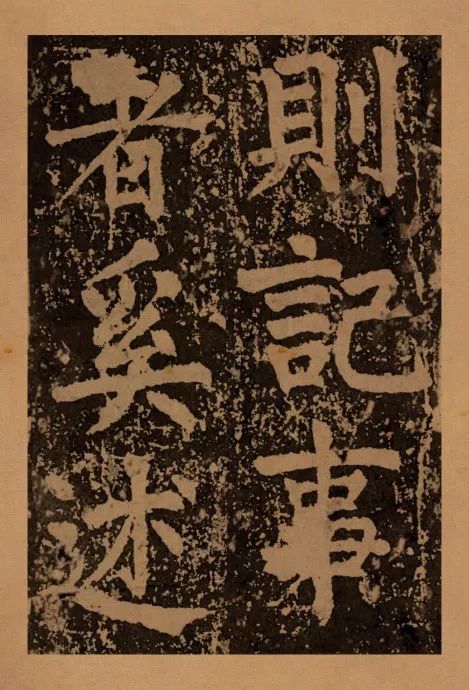 則記事
者奚述